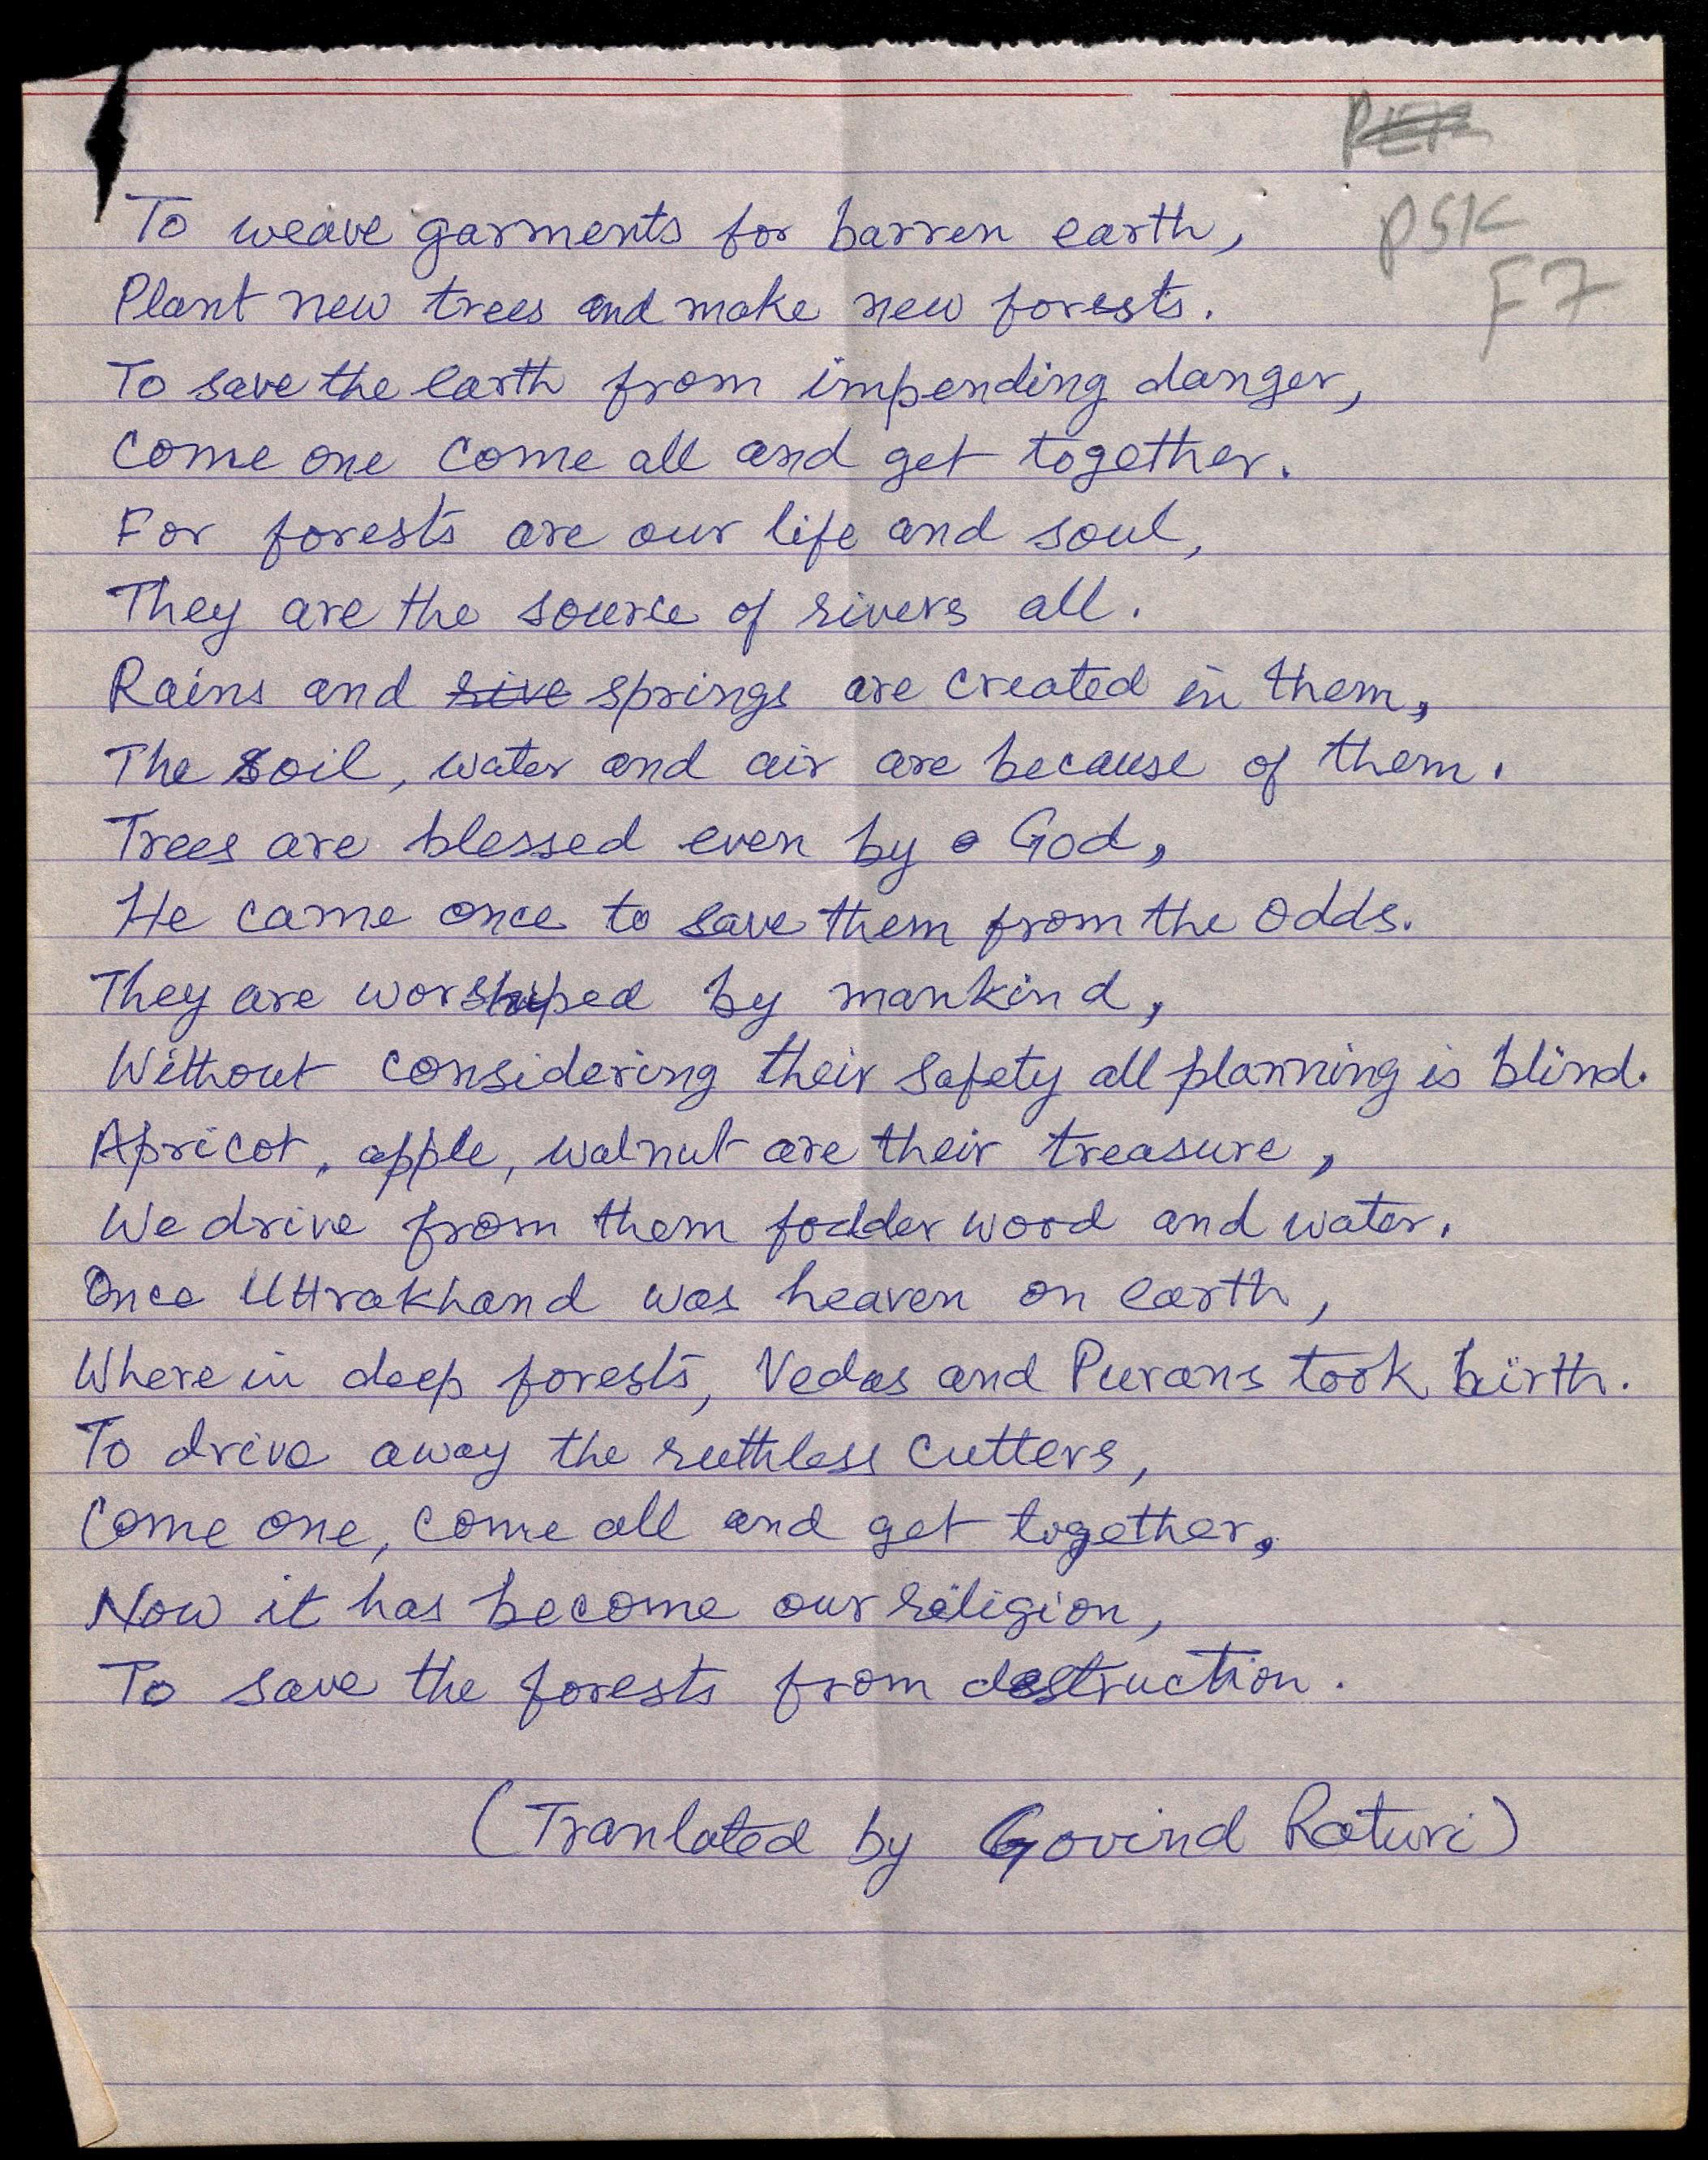 PSK
F7
To weave garments for barren earth,
Plant new trees and make new forests.
To save the earth from impending danger,
Come one come all and get together.
For forests are our life and soul,
They are the source of rivers all.
Rains and rive springs are created in them,
The soil, water and air are because of them.
Trees are blessed even by God,
He came once to save them from the odds.
They are worshiped by mankind,
Without considering their safety all planning is blind.
Apricot, apple, walnut are their treasure,
We drive from them fodder wood and water.
Once Uttrakhand was heaven on earth,
Where in deep forests, Vedas and Purans took birth.
To drive away the ruthless cutters,
Come one, come all and get together,
Now it has become our religion,
To save the forests from destruction.
(Tranlated by Govind Raturi)